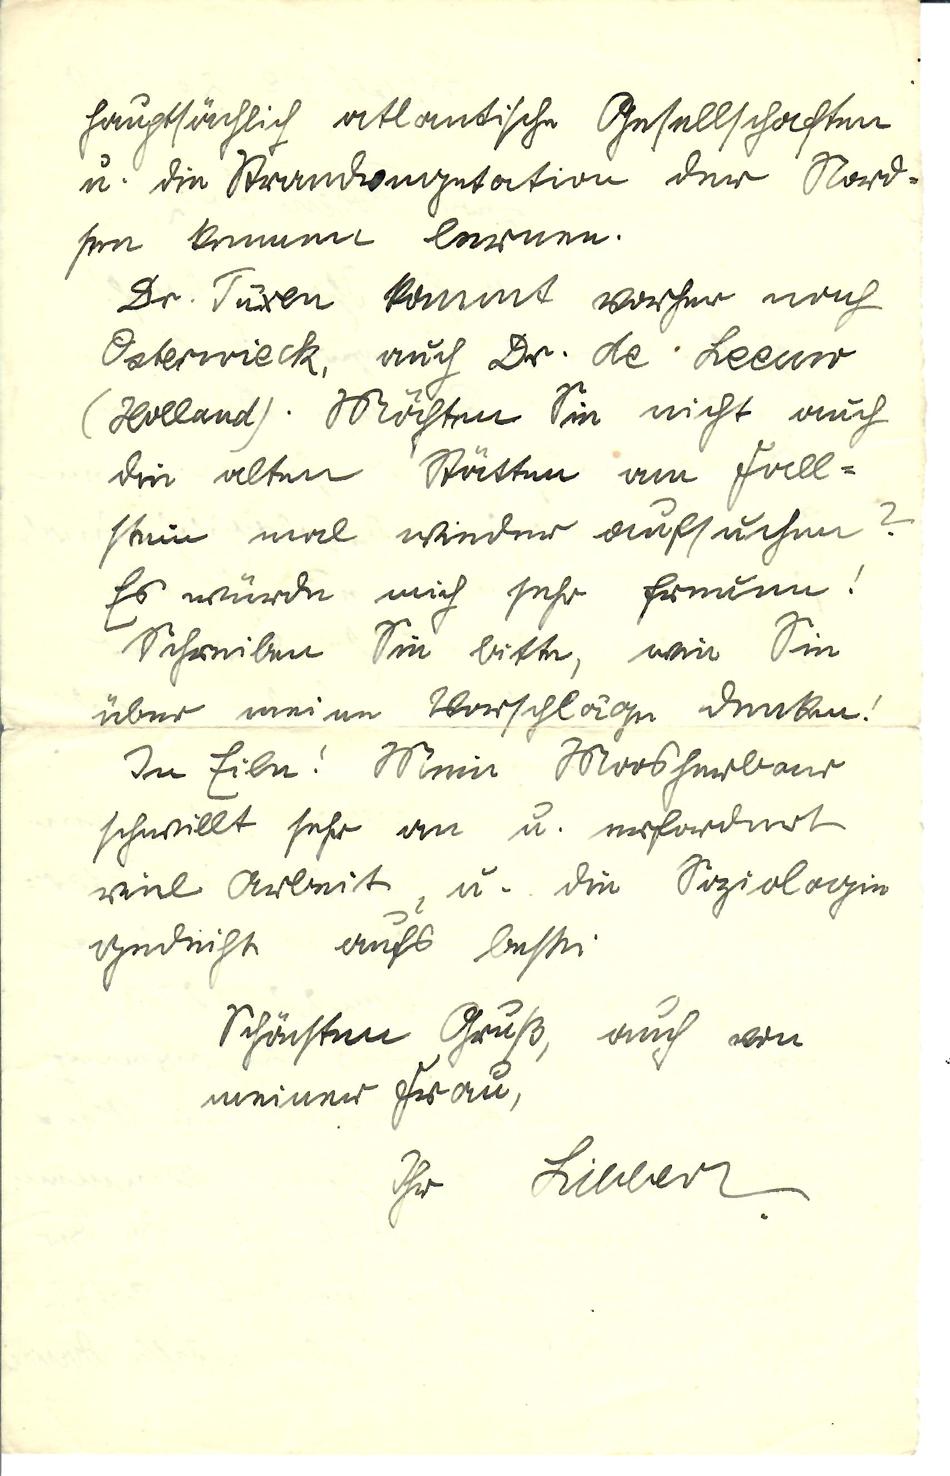 hauptsächlich atlantische Gesellschaften
u. die Strandvegetation der Nord-
see kennen lernen.
Dr. Tüxen kommt vorher nach
Osterwieck, auch Dr. de Leeuw
(Holland). Möchten Sie nicht auch
die alten Stätten am Fall-
stein mal wieder aufsuchen?
Es würde mich sehr freuen!
Schreiben Sie bitte, wie Sie
über meine Vorschläge denken!
In Eile! Mein Moosherbar
schwillt sehr an u. erfordert
viel Arbeit, u. die Soziologie
gedeiht aufs beste.
Schönsten Gruß, auch von
meiner Frau,
Ihr Libbert